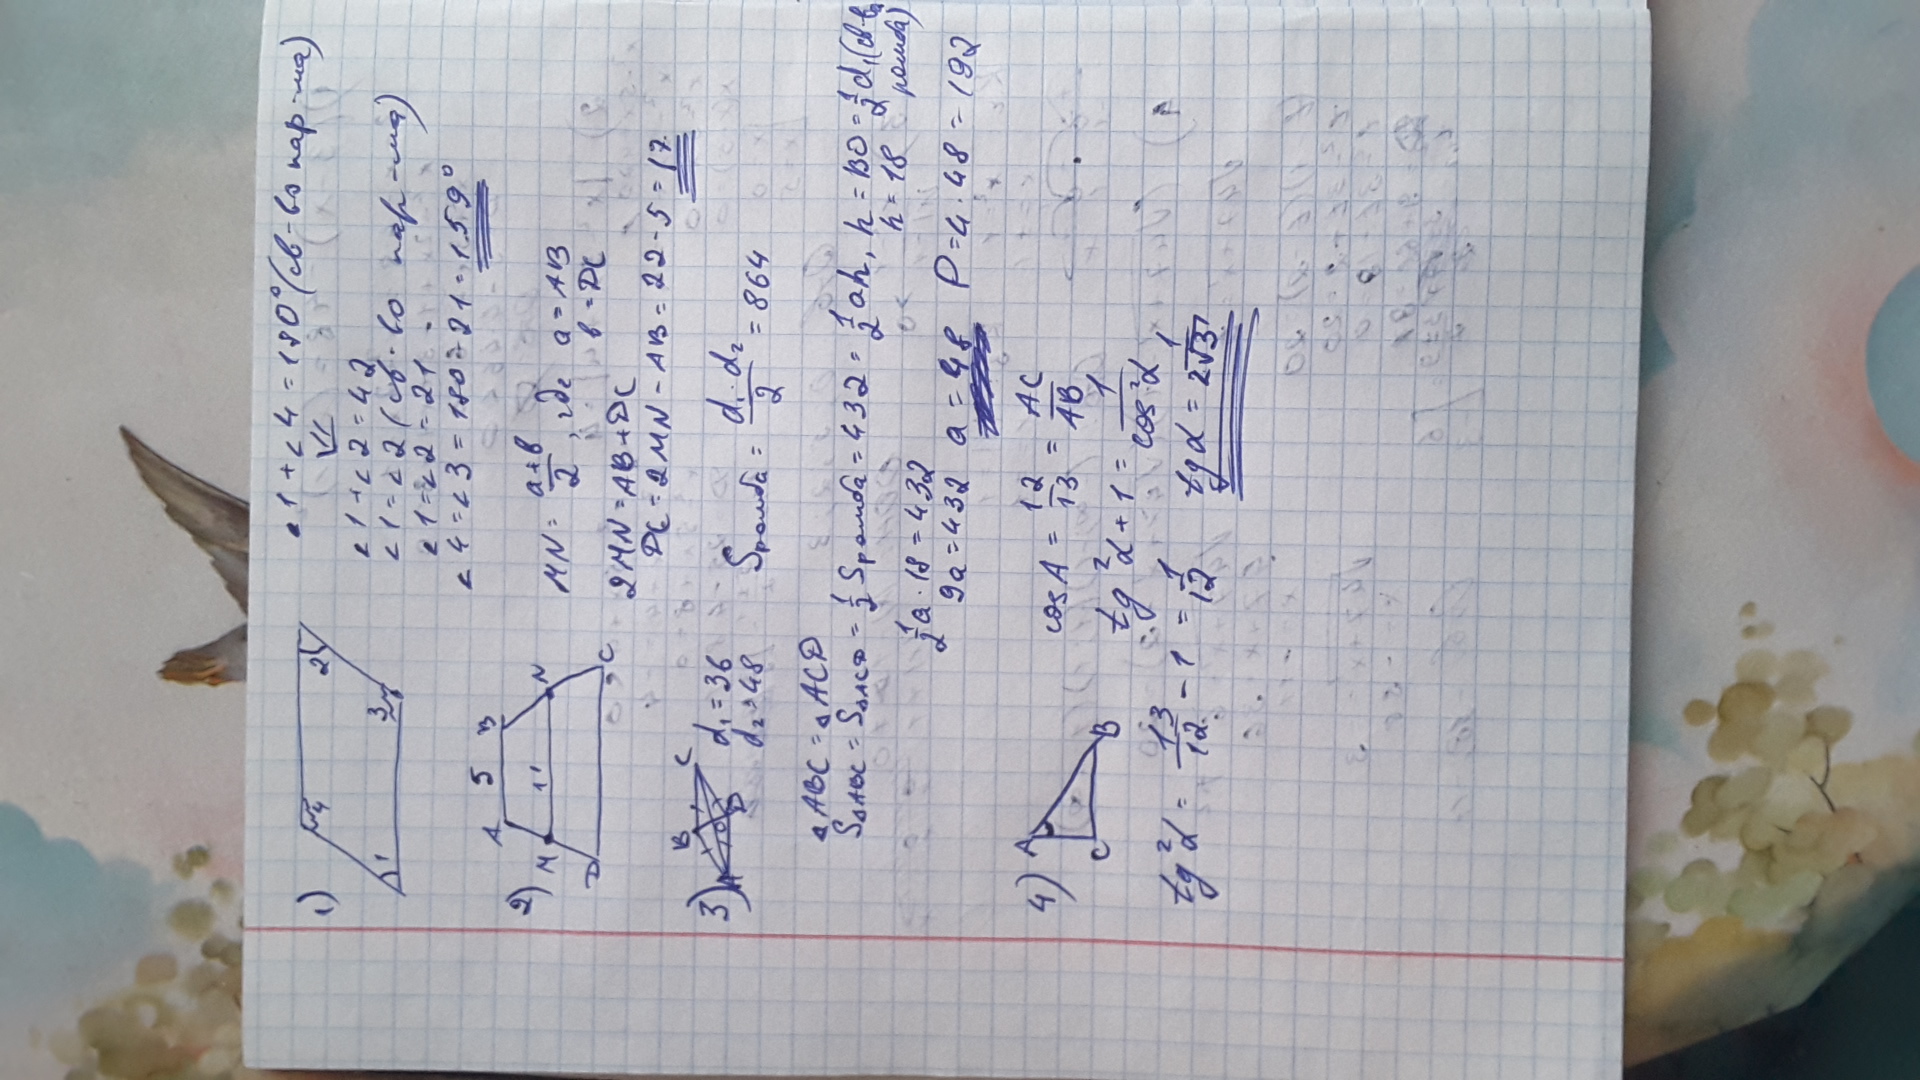 1) 4 2 1 3
∠1+∠4=180° (св-во пар-ма)
⇓
∠1+∠2=42
∠1=∠2 (св-во пар-ма)
∠1=∠2=21.
∠4=∠3=180-21=159°
2) A 5 B M 11 N D C
MN = (a+b)/2, где a=AB
b=DC
2MN=AB+DC
DC=2MN-AB=22-5=17.
3) B C A O D
d₁=36
d₂=48
Sромба = (d₁·d₂)/2 = 864
△ABC=△ACD
S△ABC=S△ACD=1/2 Sромба=432=1/2 ah, h=BO=1/2 d₁ (св-ва ромба)
h=18
1/2 a·18=432
9a=432 a=48 P=4·48=192
4) A C B
cosA = 12/13 = AC/AB
tg²α+1 = 1/cos²α
tg²α = 13/12 - 1 = 1/12 tgα = 1/2√3